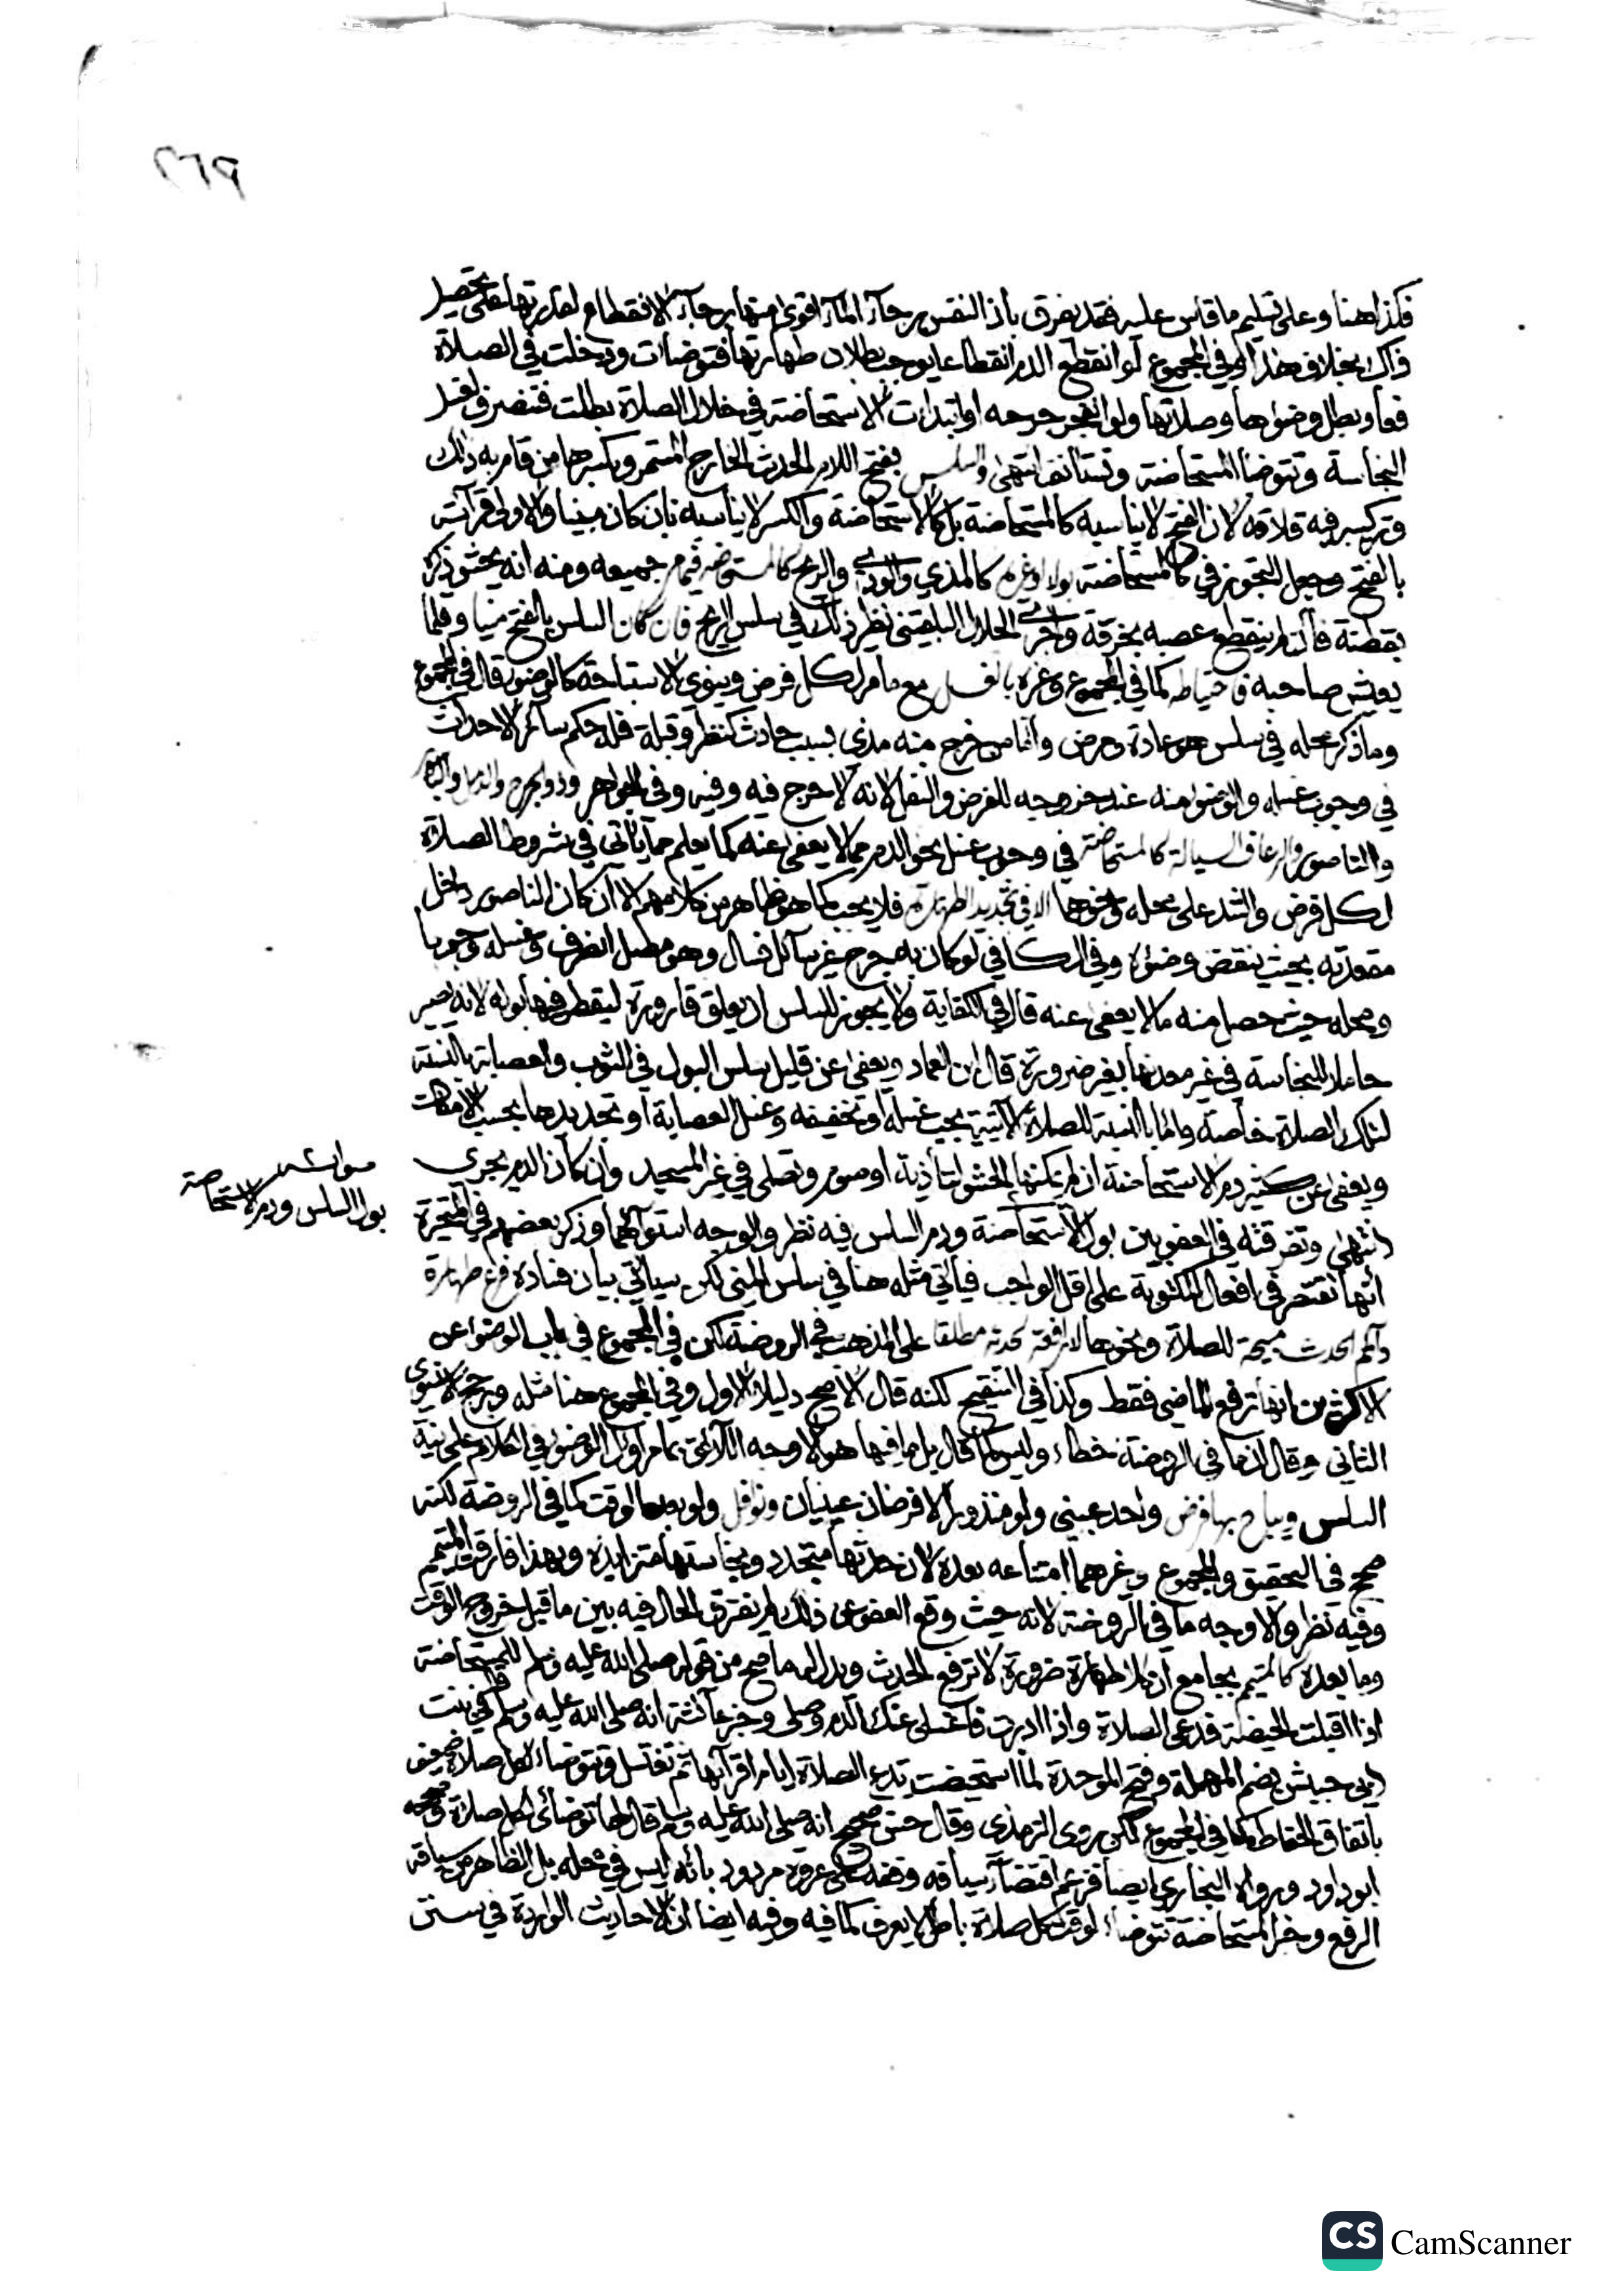 فكذا هنا وعلى تسليم ما قاس عليه فقد يفرق بأن النفس برجآء المآء اقوى منها برجآء الانقطاع لقدرتها على تحصيل
ذاك بخلاف هذا وفي المجموع لو انقطع الدم انقطاعا يوجب بطلان طهارتها فتوضات ودخلت في الصلاة
فعاد بطل وضوءها وصلاتها ولو انفجر جرحه او ابتدات الاستحاضة في خلال الصلاة بطلت فتنصرف لغسل
النجاسة وتتوضا المستحاضة وتستانف انتهى والسلس بفتح اللام الحدث الخارج المستمر وبكسرها من قام به ذلك
وتركيبه فيه قلاقة لان الفتح لا يناسبه كالمستحاضة بل كالاستحاضة والكسر لا يناسبه بأن كان منيا والاولى قرآته
بالفتح وجعل التجوز في كالمستحاضة بولا او غيره كالمذي والودي والريح كالمستحاضة فيما مر جميعه ومنه انه يحشو ذكره
بقطنة فأن لم ينقطع عصبه بخرقة واجرى الجلال البلقيني نظير ذلك في سلس الريح فان كان السلس بالفتح منيا وقلما
يعيش صاحبه فاحتياطه كما في المجموع وغيره بالغسل مع ما مر لكل فرض وينوي الاستباحة كالوضوء قال في المجموع
وما ذكر محله في سلس هو عادة ومرض وأما من خرج منه مذي بسبب حادث كنظر وقبلة فله حكم سائر الاحداث
في وجوب غسله والوضوء منه عند خروجه للفرض والنفل لانه لا حرج فيه وفيه وفي الجواهر وذو الجرح والدمل
والناصور والرعاف السيالة كالمستحاضة في وجوب غسل نحو الدم مما لا يعفى عنه كما يعلم مما يأتي في شروط الصلاة
لكل فرض والشد على محله ونحوها لا في تجديد الطهارة فلا يجب كما هو ظاهر من كلامهم الا ان كان الناصور داخل
مقعدته بحيث ينقض وضوءه وفي الكافي لو كان به جرح غير سائل فسال وهو مصل انصرف وغسله وجوبا
ومحله حيث حصل منه ما لا يعفى عنه قال في الكفاية ولا يجوز للسلس ان يعلق قارورة ليقطر فيها بوله لانه يصير
حاملا للنجاسة في غير معدنها بغير ضرورة قال ابن العماد ويعفى عن قليل سلس البول في الثوب والعصابة بالنسبة
لتلك الصلاة خاصة واما بالنسبة للصلاة الآتية يجب غسله او تخفيفه وغسل العصابة او تجديدها بحسب الامكان
ويعفى عن كثير دم الاستحاضة ان لم يمكنها الحشو لتأذيه او صوم وتصلي في غير المسجد وان كان الدم يجري
انتهى وتفرقته في العفو بين بول الاستحاضة ودم السلس فيه نظر والوجه استوائهما وذكر بعضهم في المتحيرة
انها تقتصر في افعال المكتوبة على اقل الواجب فيأتي مثله هنا في سلس المني لكن سيأتي بيان فساده فرع طهارة
دائم الحدث مبيحة للصلاة ونحوها لا رافعة لحدثه مطلقا على المذهب في الروضة لكن في المجموع في باب الوضوء عن
الاكثرين انها ترفع الماضي فقط وكذا في التنقيح لكنه قال الاصح دليلا الاول وفي المجموع هنا مثله ورجح الاسنوي
الثاني وقال ان ما في الروضة خطاء وليس كما قال بل ما فيها هو الاوجه اللائق بما مر اول الوضوء في الكلام على نية
السلس ويباح بها فرض واحد عيني ولو منذورا لا فرضان عينيان ونوافل ولو بعد الوقت كما في الروضة لكنه
صحح في التحقيق والمجموع وغيرهما امتناعه بعده لان حدثها متجدد ونجاستها متزايدة وبهذا فارقت المتيمم
وفيه نظر والاوجه ما في الروضة لانه حيث وقع العفو عن ذلك لم يفترق الحال فيه بين ما قبل خروج الوقت
وما بعده كالمتيمم بجامع ان كلا طهارة ضرورة لا ترفع الحدث ويدل له ما صح من قوله صلى الله عليه وسلم للمستحاضة
اذا اقبلت الحيضة فدعي الصلاة واذا ادبرت فاغسلي عنك الدم وصلي وخبر عائشة انه صلى الله عليه وسلم قال في بنت
ابي حبيش بضم المهملة وفتح الموحدة لما استحيضت تدع الصلاة ايام اقرآئها ثم تغتسل وتتوضاء لكل صلاة ضعيف
باتفاق الحفاظ كما في المجموع لكن روى الترمذي وقال حسن صحيح انه صلى الله عليه وسلم قال لها توضائ لكل صلاة وصححه
ابو داود ورواه البخاري ايضا فزعم اقتضآء سياقه وقفه على عروة مردود بانه ليس في محله بل الظاهر من سياقه
الرفع وخبر المستحاضة تتوضاء لوقت كل صلاة باطل لا يعرف كما فيه وفيه ايضا ان الاحاديث الواردة في سنن
بول السلس ودم الاستحاضة
CS CamScanner